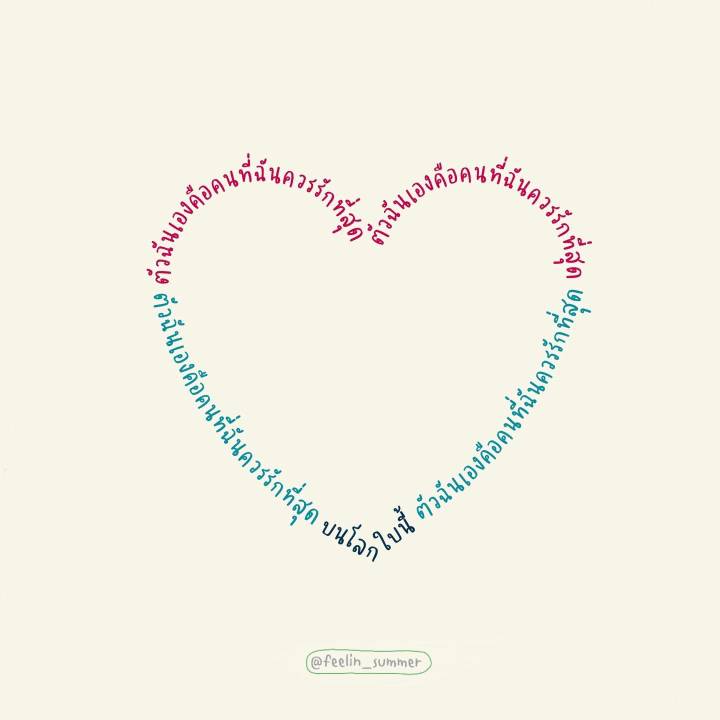 ตัวฉันเองคือคนที่ฉันควรรักที่สุด
ตัวฉันเองคือคนที่ฉันควรรักที่สุด
ตัวฉันเองคือคนที่ฉันควรรักที่สุด
บนโลกใบนี้
ตัวฉันเองคือคนที่ฉันควรรักที่สุด
@feelin_summer